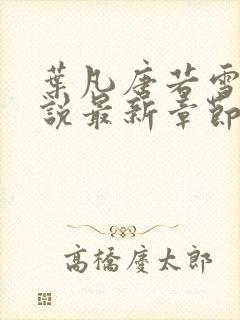 葉凡唐若雪
說最新章節
高橋慶太郎